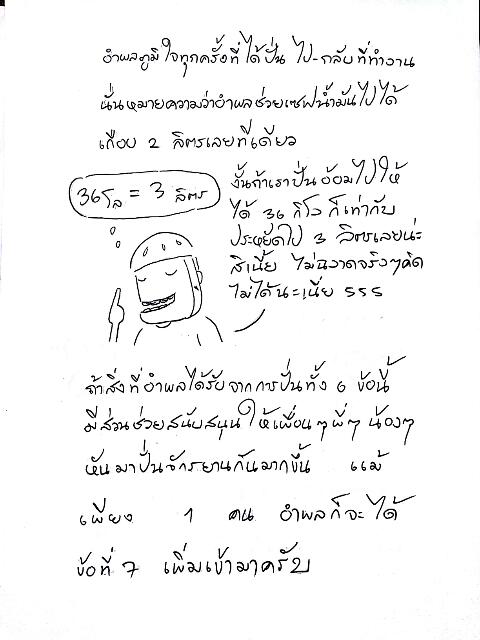 อำพลภูมิใจทุกครั้งที่ได้ปั่น ไป-กลับที่ทำงาน
นั่นหมายความว่าอำพลช่วยเซฟน้ำมันไปได้
เกือบ 2 ลิตรเลยทีเดียว
36โล = 3 ลิตร
งั้นถ้าเราปั่นอ้อมไปให้
ได้ 36 กิโล ก็เท่ากับ
ประหยัดไป 3 ลิตรเลยน่ะ
สิเนี้ย ไม่ฉลาดจริงๆคิด
ไม่ได้นะเนี่ย 555
ถ้าสิ่งที่อำพลได้รับจากการปั่นทั้ง 6 ข้อนี้
มีส่วนช่วยสนับสนุนให้เพื่อนๆพี่ๆ น้องๆ
หันมาปั่นจักรยานกันมากขึ้น แม้
เพียง 1 คน อำพลก็จะได้
ข้อที่ 7 เพิ่มเข้ามาครับ